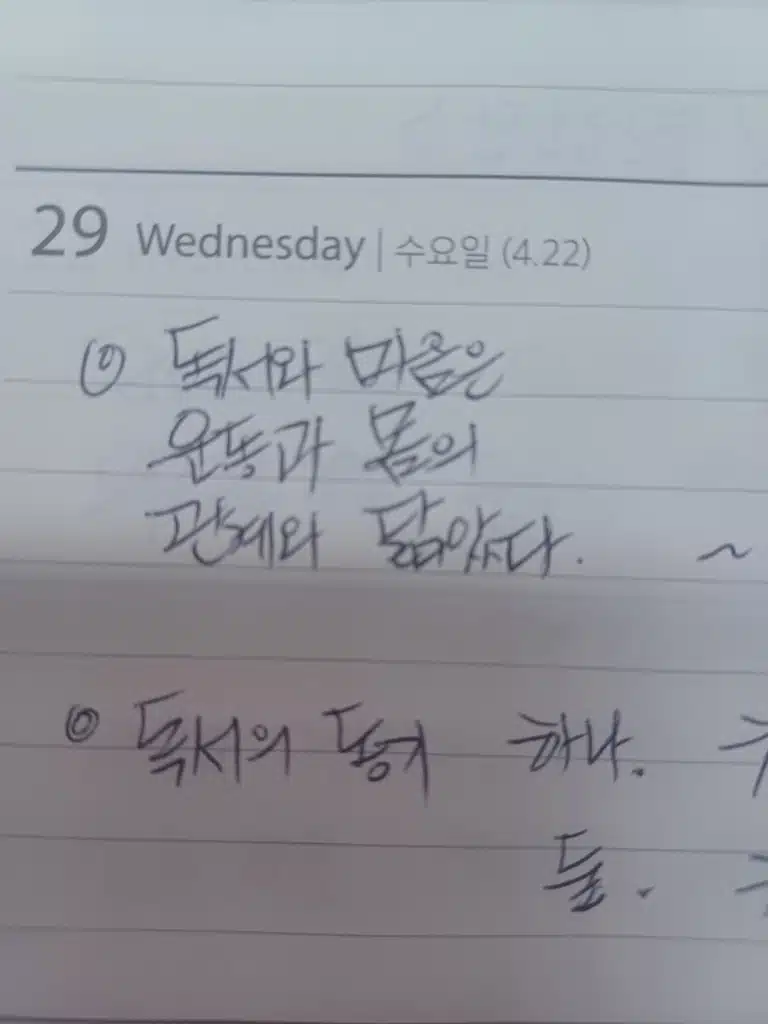 29 Wednesday | 수요일 (4.22)
◎ 독서와 마음은
운동과 몸의
관계와 닮았다. ~
◎ 독서의 동기 하나.
둘.